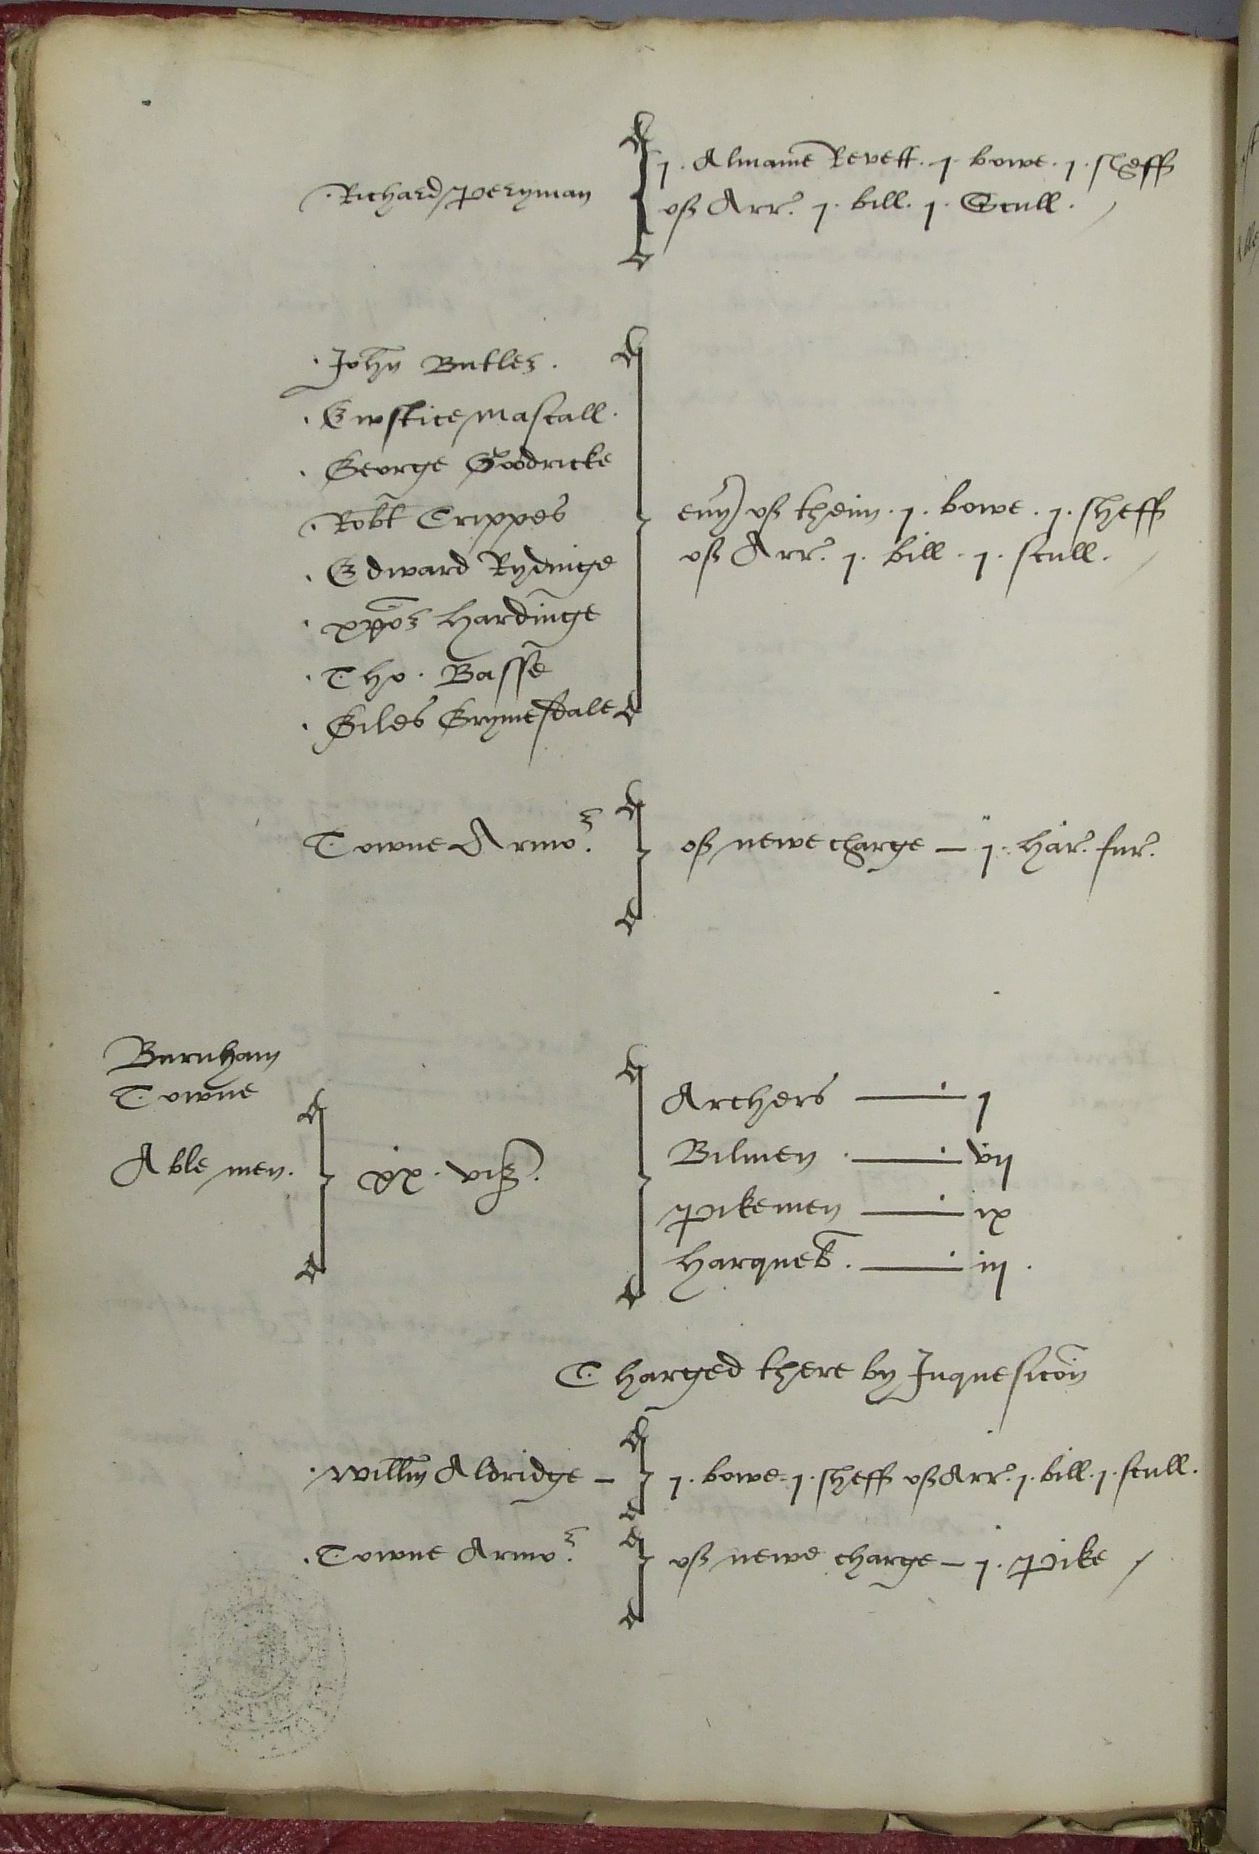 .Richard Peryman
1. Almaine Revett. 1 bowe. 1. sheff
of Arr. 1. bill. 1. Scull.
.John Butler.
.Ewstice Mascall.
.George Goodricke
.Robt Crippes
.Edward Rydinge
.xpofer Hardinge
.Tho. Basse
.Giles Grymesdale
euy of theim. 1. bowe. 1. sheff
of Arr. 1. bill. 1. scull.
Towne Armor.
of newe charge — j. har. fur.
Burnham
Towne
Able men.
xx. viz.
Archers — j
Bilmen — vij
Pikemen — ix
Harqueb. — iij.
Charged there by Inquesicon
.Willm Aldridge —
1. bowe. 1. sheff of Arr. 1. bill. 1. scull.
.Towne Armor.
of newe charge — j. Pike